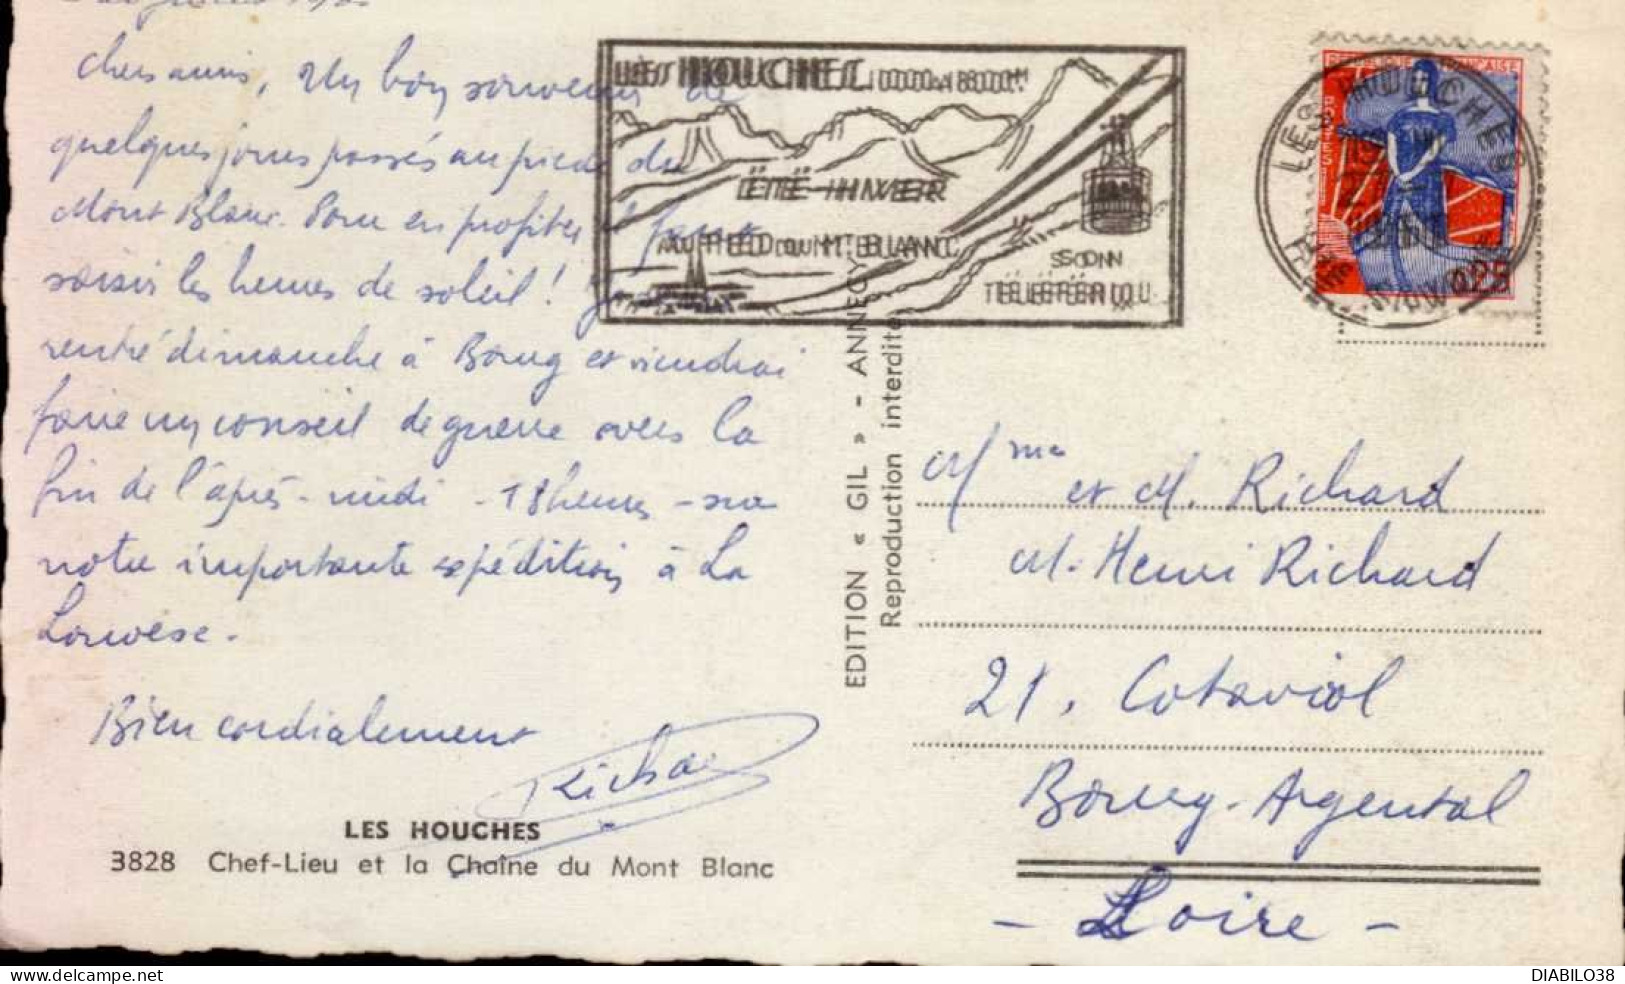 Chers amis, Un bon souvenir de
quelques jours passés au pied du
Mont Blanc. Pour en profiter il faut
saisir les heures de soleil ! Je
rentre dimanche à Bourg et viendrai
faire un conseil de guerre vers la
fin de l'après-midi - 18 heures - sur
notre importante expédition à La
Louvesc.
Bien cordialement
Richard
LES HOUCHES
3828 Chef-Lieu et la Chaîne du Mont Blanc
EDITION « GIL » - ANNECY
Reproduction interdite
LES HOUCHES
ÉTÉ-HIVER
AU PIED DU MT BLANC
SON
TÉLÉFÉRIQU
REPUBLIQUE FRANÇAISE
POSTES
0,25
LES HOUCHES
Mme et M. Richard
M. Henri Richard
21, Cotaviol
Bourg-Argental
- Loire -
DIABILO38